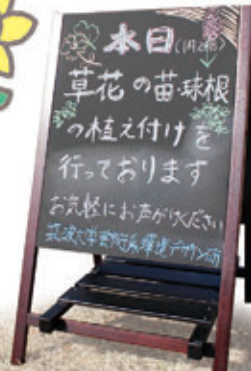 本日
草花の苗・球根
の植え付けを
行っております
お気軽にお声がけください
筑波大学